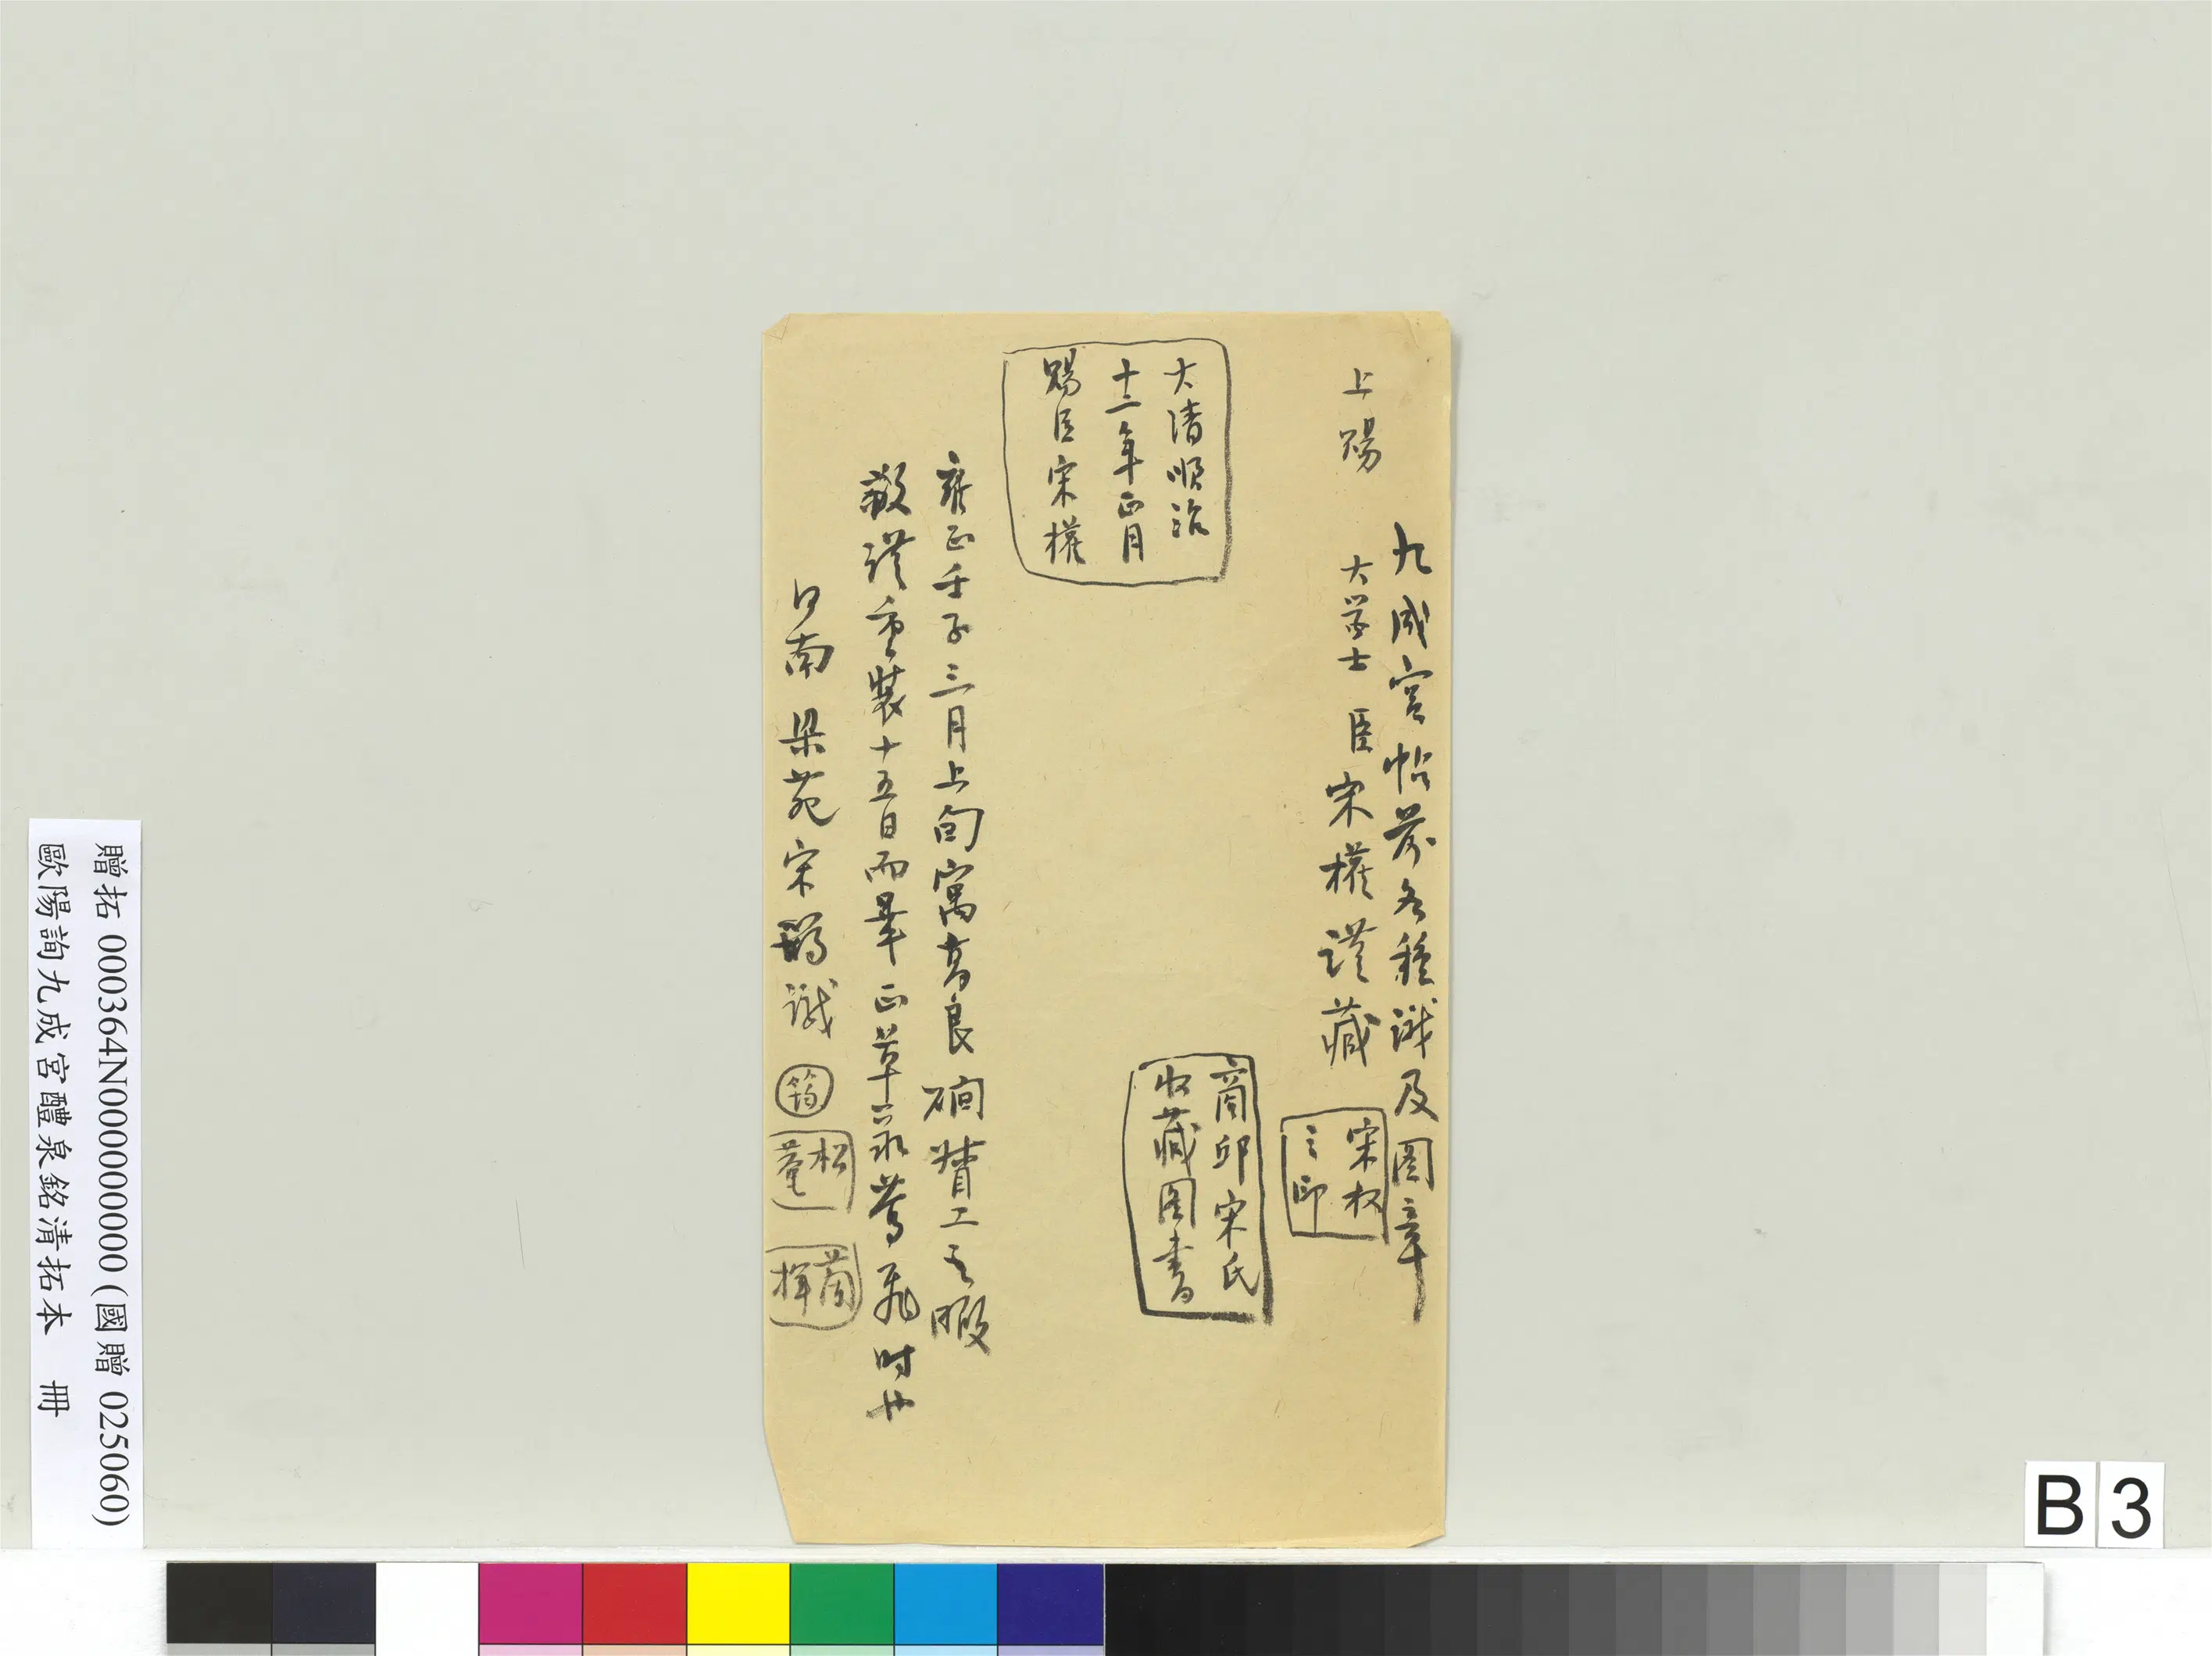 九成宮帖前各種識及图章
上賜 大學士 臣宋權謹藏
宋权
之印
商邱宋氏
收藏图書
大清順治
十二年正月
賜臣宋權
雍正壬子三月上旬寓高良磵督工之暇
敬謹重裝十五日而畢正草長鶯飛时也
日南 梁苑宋 識
筠
松
菴
蘭
揮
贈拓 000364N000000000 (國贈 025060)
歐陽詢九成宮醴泉銘清拓本 冊
B 3